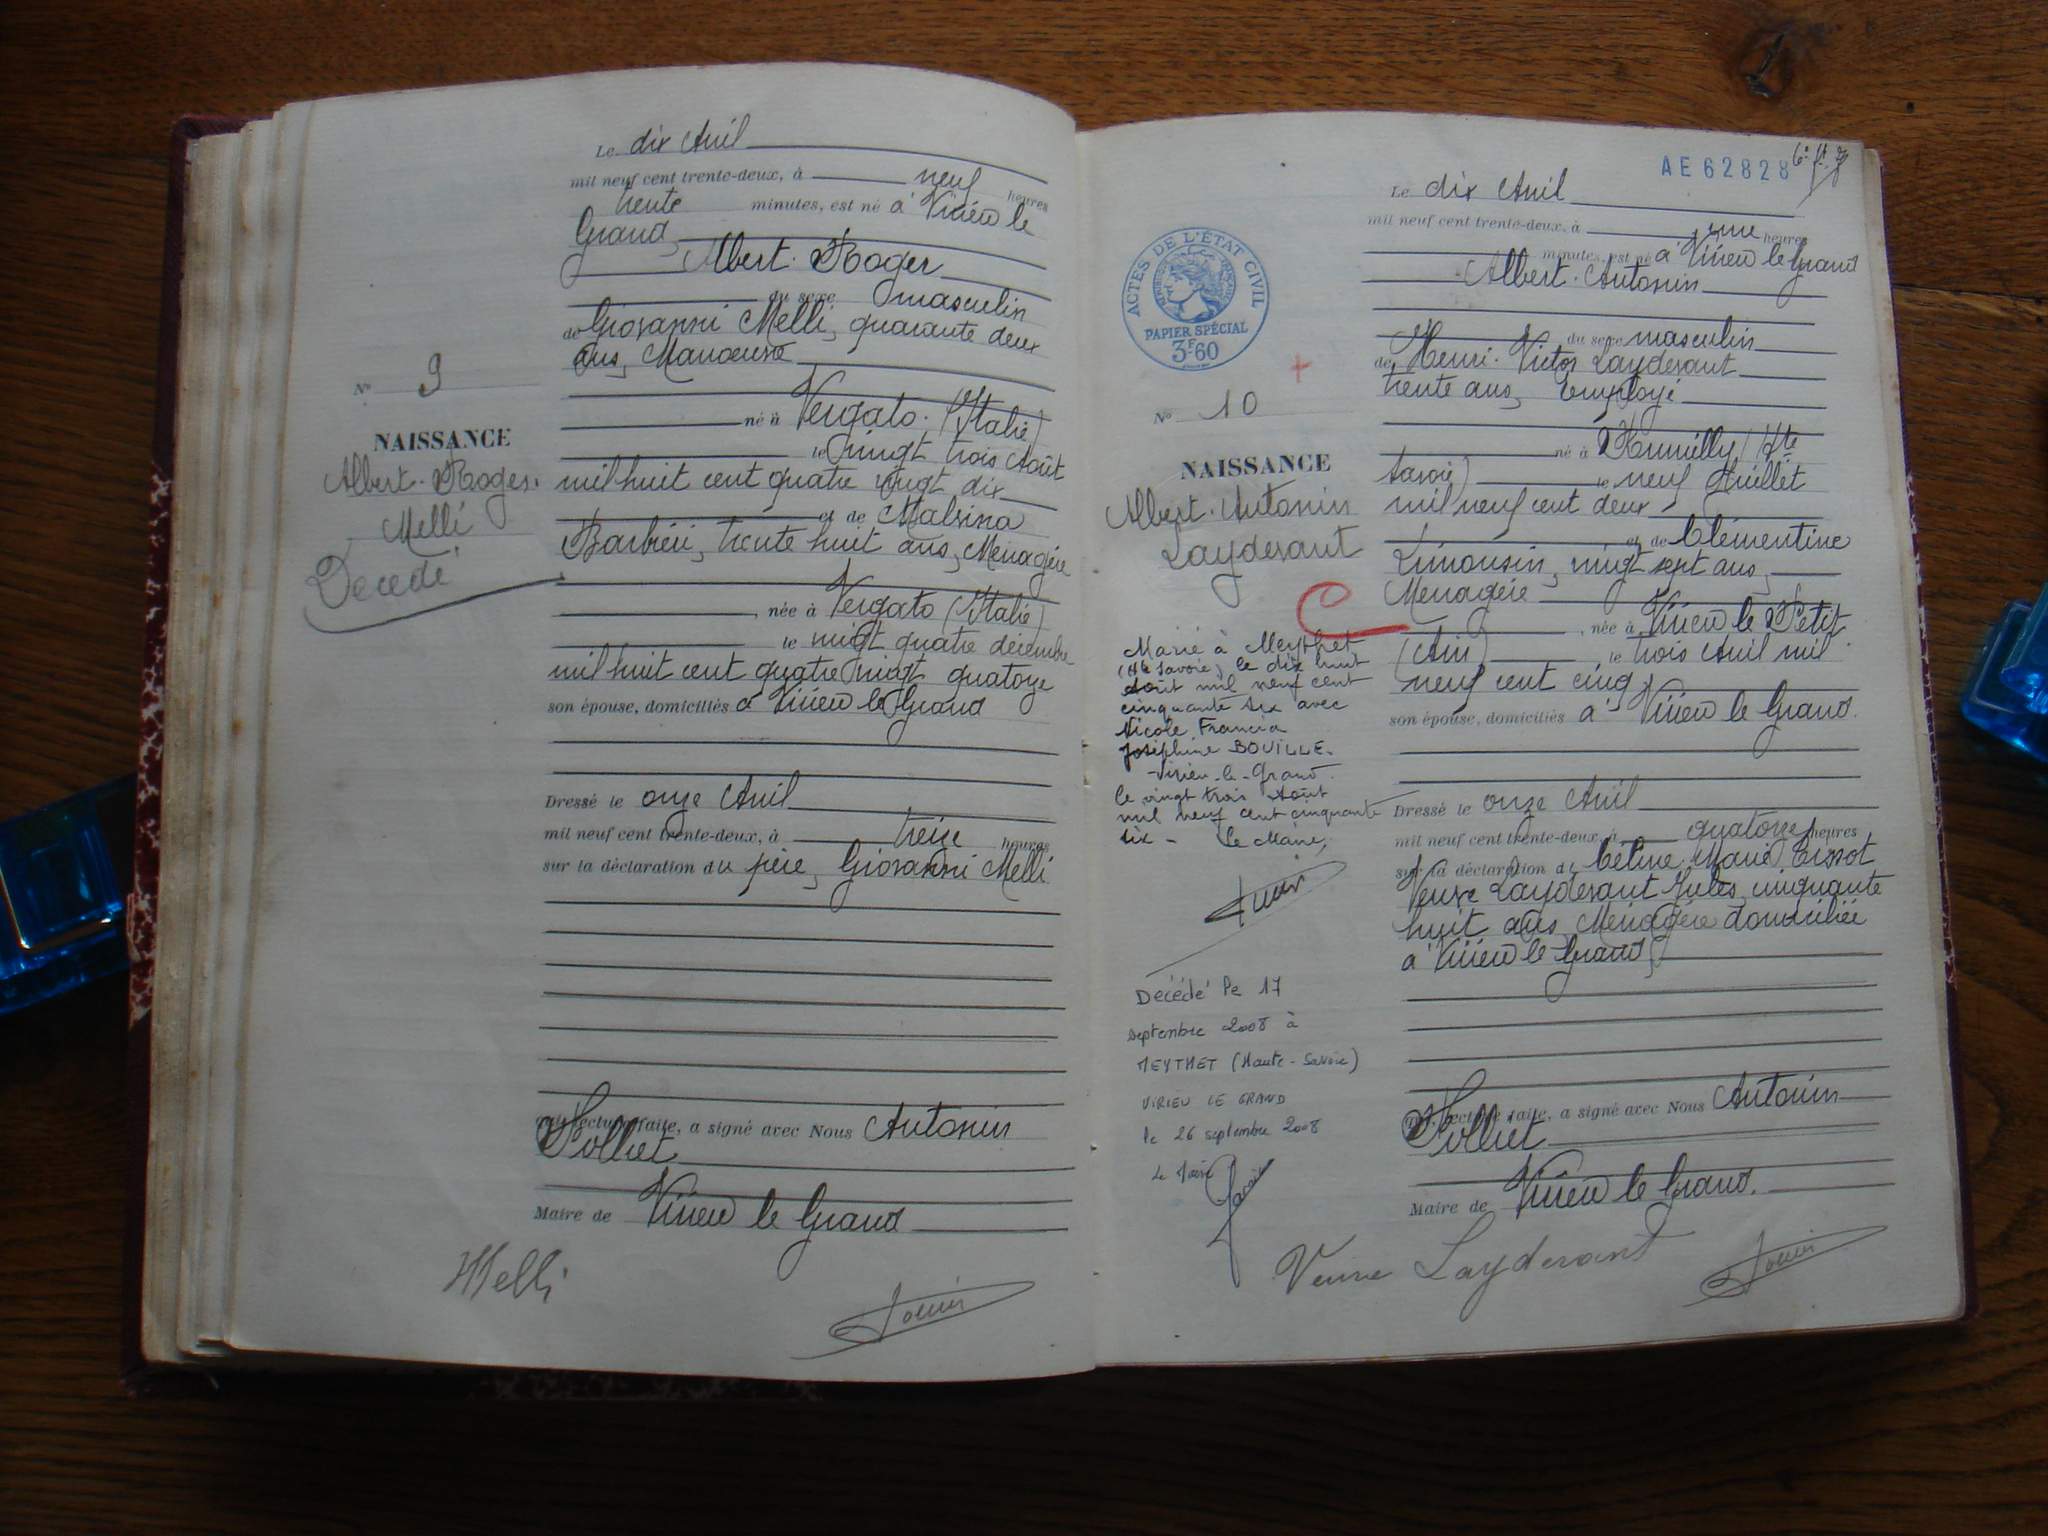 Le dix Avril
mil neuf cent trente-deux, à neuf heures
trente minutes, est né à Virieu le
Grand,
Albert. Roger
du sexe masculin
de Giovanni Melli, quarante deux
ans, Manœuvre
né à Vergato. (Italie)
le vingt trois Août
mil huit cent quatre vingt dix
et de Malvina
Barbiéri, trente huit ans, Ménagère
, née à Vergato (Italie)
le vingt quatre décembre
mil huit cent quatre vingt quatorze
son épouse, domiciliés à Virieu le Grand
Dressé le onze Avril
mil neuf cent trente-deux, à treize heures
sur la déclaration du père, Giovanni Melli
lecture faite, a signé avec Nous Antonin
Solliet
Maire de Virieu le Grand
Melli
N° 9
NAISSANCE
Albert. Roger.
Melli
Décédé
AE 62828
Le dix Avril
mil neuf cent trente-deux, à une heures
minutes, est né à Virieu le Grand
Albert. Antonin
du sexe masculin
de Henri. Victor Layderant
trente ans, Employé
né à Rumilly (Hte
Savoie) le neuf Juillet
mil neuf cent deux
et de Clémentine
Limousin, vingt sept ans,
Ménagère
, née à Virieu le Petit
(Ain) le trois Avril mil
neuf cent cinq
son épouse, domiciliés à Virieu le Grand.
Dressé le onze Avril
mil neuf cent trente-deux, à quatorze heures
sur la déclaration de Céline Marie Tissot
Veuve Layderant Jules, cinquante
huit ans, Ménagère domiciliée
à Virieu le Grand,
lecture faite, a signé avec Nous Antonin
Solliet
Maire de Virieu le Grand.
Veuve Layderant
ACTES DE L'ÉTAT CIVIL
PAPIER SPÉCIAL
3F60
N° 10
NAISSANCE
Albert. Antonin
Layderant
Marié à Meythet
(Hte Savoie) le dix huit
Août mil neuf cent
cinquante six avec
Nicole Francia
Joséphine BOUILLE.
Virieu-le-Grand.
le vingt trois Août
mil neuf cent cinquante
six - Le Maire,
Décédé le 17
septembre 2008 à
MEYTHET (Haute-Savoie)
VIRIEU LE GRAND
le 26 septembre 2008
Le Maire